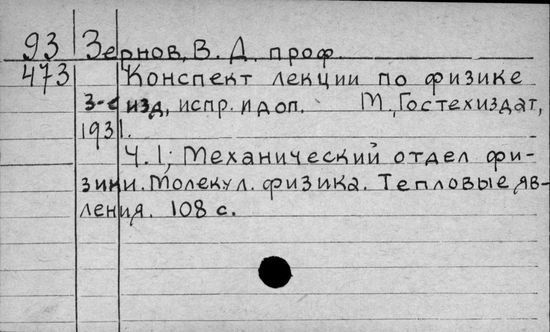 93 Зернов, В. Д. проф.
473 Конспект лекции по физике
3-е изд, испр. и доп. М., Гостехиздат,
1931.
Ч. I; Механический отдел фи-
зики. Молекул. физика. Тепловые яв-
ления. 108 с.